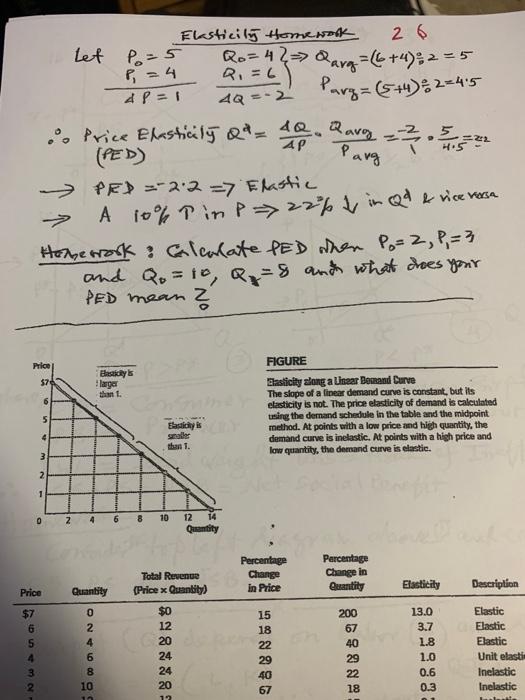 Elasticity Homework 26
Let P₀ = 5 Q₀ = 4 } => Qavg = (6+4)÷2 = 5
P₁ = 4 Q₁ = 6 Pavg = (5+4)÷2 = 4.5
ΔP = 1 ΔQ = -2
∴ Price Elasticity Qᵈ = ΔQ/ΔP · Qavg/Pavg = -2/1 · 5/4.5 = 2.2
(PED)
→ PED = -2.2 => Elastic
→ A 10% ↑ in P => 22% ↓ in Qᵈ & vice versa
Homework: Calculate PED when P₀ = 2, P₁ = 3
and Q₀ = 10, Q₁ = 8 and what does your
PED mean?
FIGURE
Elasticity along a Linear Demand Curve
The slope of a linear demand curve is constant, but its
elasticity is not. The price elasticity of demand is calculated
using the demand schedule in the table and the midpoint
method. At points with a low price and high quantity, the
demand curve is inelastic. At points with a high price and
low quantity, the demand curve is elastic.
Price
Elasticity is
larger
than 1.
$7
6
5
Elasticity is
smaller
than 1.
4
3
2
1
0 2 4 6 8 10 12 14
Quantity
Price Quantity Total Revenue (Price × Quantity) Percentage Change in Price Percentage Change in Quantity Elasticity Description
$7 0 $0 15 200 13.0 Elastic
6 2 12 18 67 3.7 Elastic
5 4 20 22 40 1.8 Elastic
4 6 24 29 29 1.0 Unit elasti
3 8 24 40 22 0.6 Inelastic
2 10 20 67 18 0.3 Inelastic